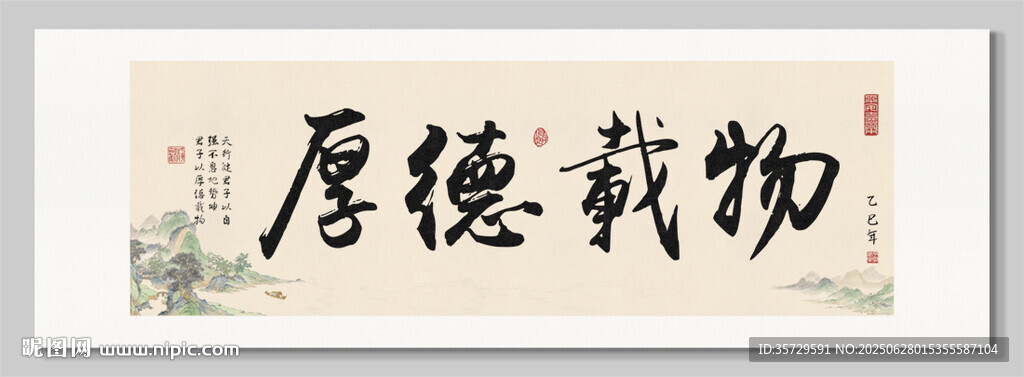 厚德载物
乙巳年
天行健君子以自
强不息地势坤
君子以厚德载物
昵图网 www.nipic.com
ID:35729591 NO:20250628015355587104